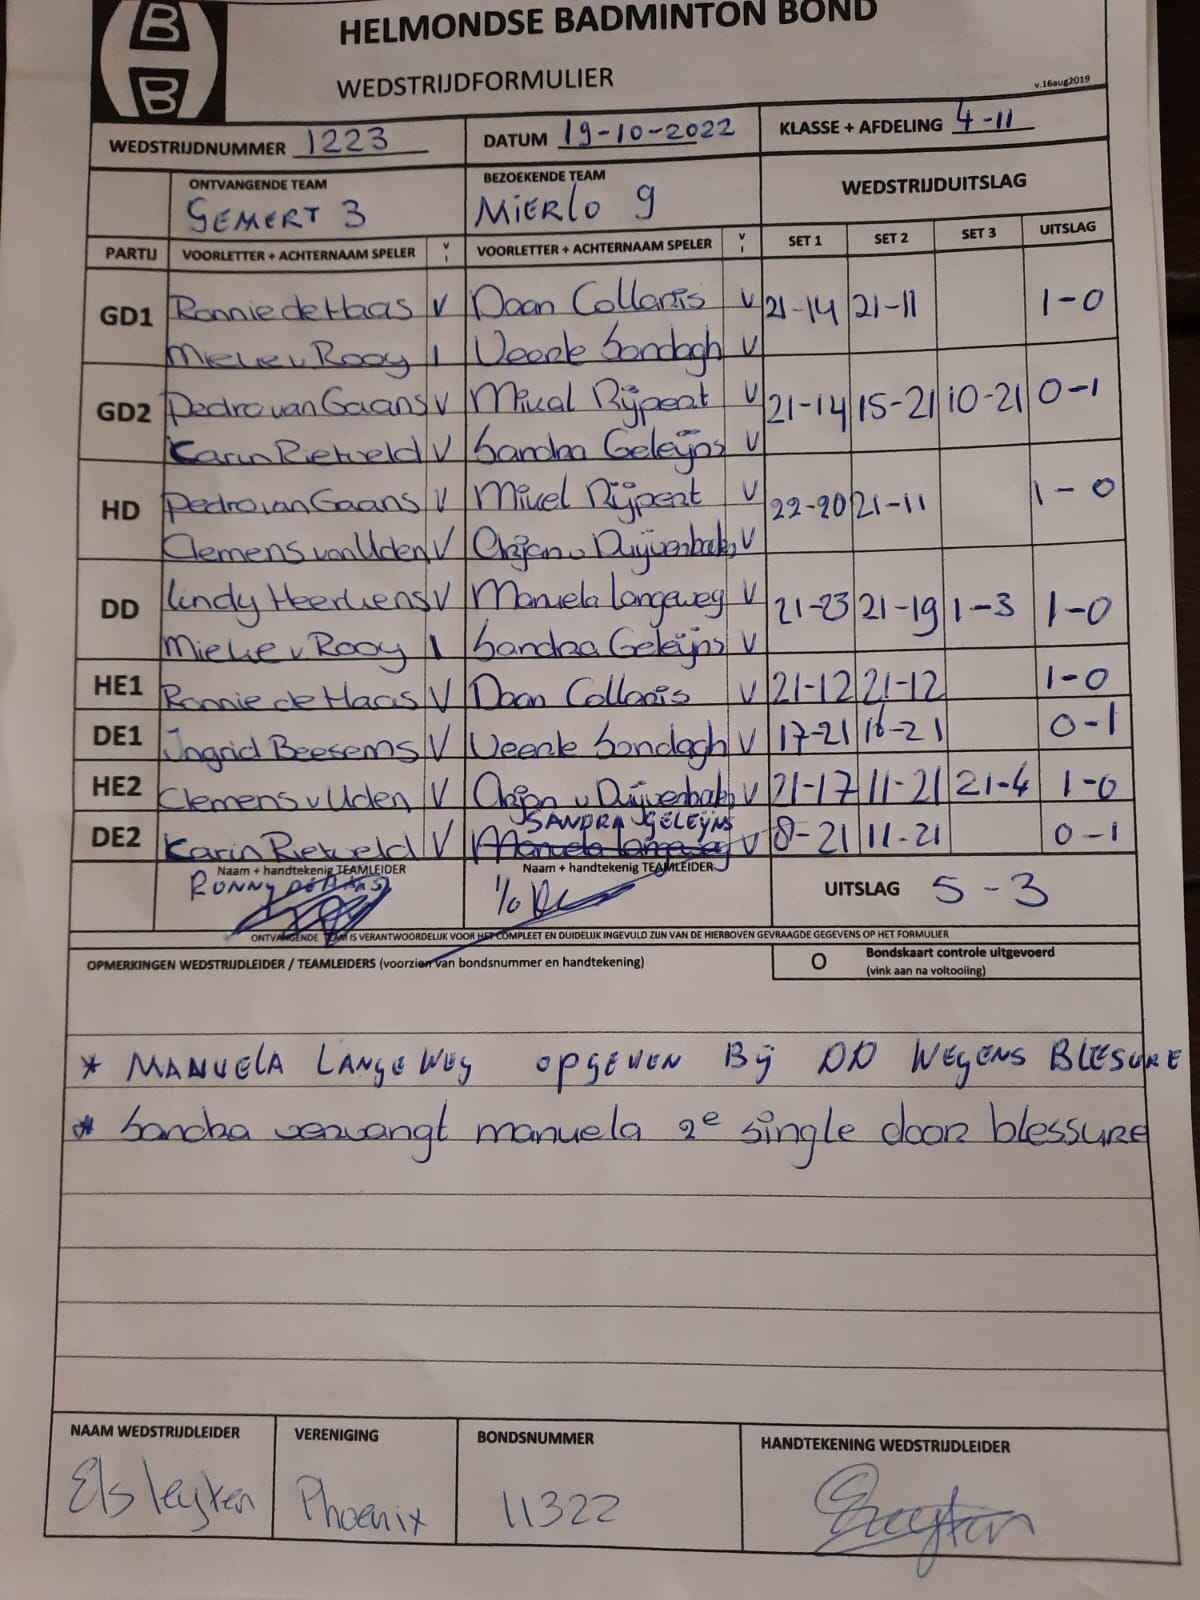 B
B
HELMONDSE BADMINTON BOND
WEDSTRIJDFORMULIER
v.16aug2019
WEDSTRIJDNUMMER 1223 DATUM 19-10-2022 KLASSE + AFDELING 4-11
ONTVANGENDE TEAM BEZOEKENDE TEAM WEDSTRIJDUITSLAG
GEMERT 3 MIERLO 9
PARTIJ VOORLETTER + ACHTERNAAM SPELER V I VOORLETTER + ACHTERNAAM SPELER V I SET 1 SET 2 SET 3 UITSLAG
GD1 Ronnie de Haas V Daan Collaris V 21-14 21-11 1-0
Mieke v Rooy I Veerle Sondagh V
GD2 Pedro van Gaans V Micel Rijpert V 21-14 15-21 10-21 0-1
Karin Rietveld V Sandra Geleijns V
HD Pedro van Gaans V Micel Rijpert V 22-20 21-11 1-0
Clemens van Uden V Arjan v Duijvenbak V
DD Lindy Heerkens V Manuela Langeweg V 21-23 21-19 1-3 1-0
Mieke v Rooy I Sandra Geleijns V
HE1 Ronnie de Haas V Daan Collaris V 21-12 21-12 1-0
DE1 Ingrid Beesems V Veerle Sondagh V 17-21 16-21 0-1
HE2 Clemens v Uden V Arjan v Duijvenbak V 21-17 11-21 21-4 1-0
SANDRA GELEIJNS
DE2 Karin Rietveld V Manuela Langeweg V 8-21 11-21 0-1
Naam + handtekenig TEAMLEIDER Naam + handtekenig TEAMLEIDER UITSLAG 5-3
RONNY DE HAAS
ONTVANGENDE TEAM IS VERANTWOORDELIJK VOOR HET COMPLEET EN DUIDELIJK INGEVULD ZIJN VAN DE HIERBOVEN GEVRAAGDE GEGEVENS OP HET FORMULIER
OPMERKINGEN WEDSTRIJDLEIDER / TEAMLEIDERS (voorzien van bondsnummer en handtekening) O Bondskaart controle uitgevoerd
(vink aan na voltooiing)
* MANUELA LANGEWEG OPGEVEN BIJ DD WEGENS BLESURE
* Sandra vervangt manuela 2e single door blessure
NAAM WEDSTRIJDLEIDER VERENIGING BONDSNUMMER HANDTEKENING WEDSTRIJDLEIDER
Els Leyten Phoenix 11322